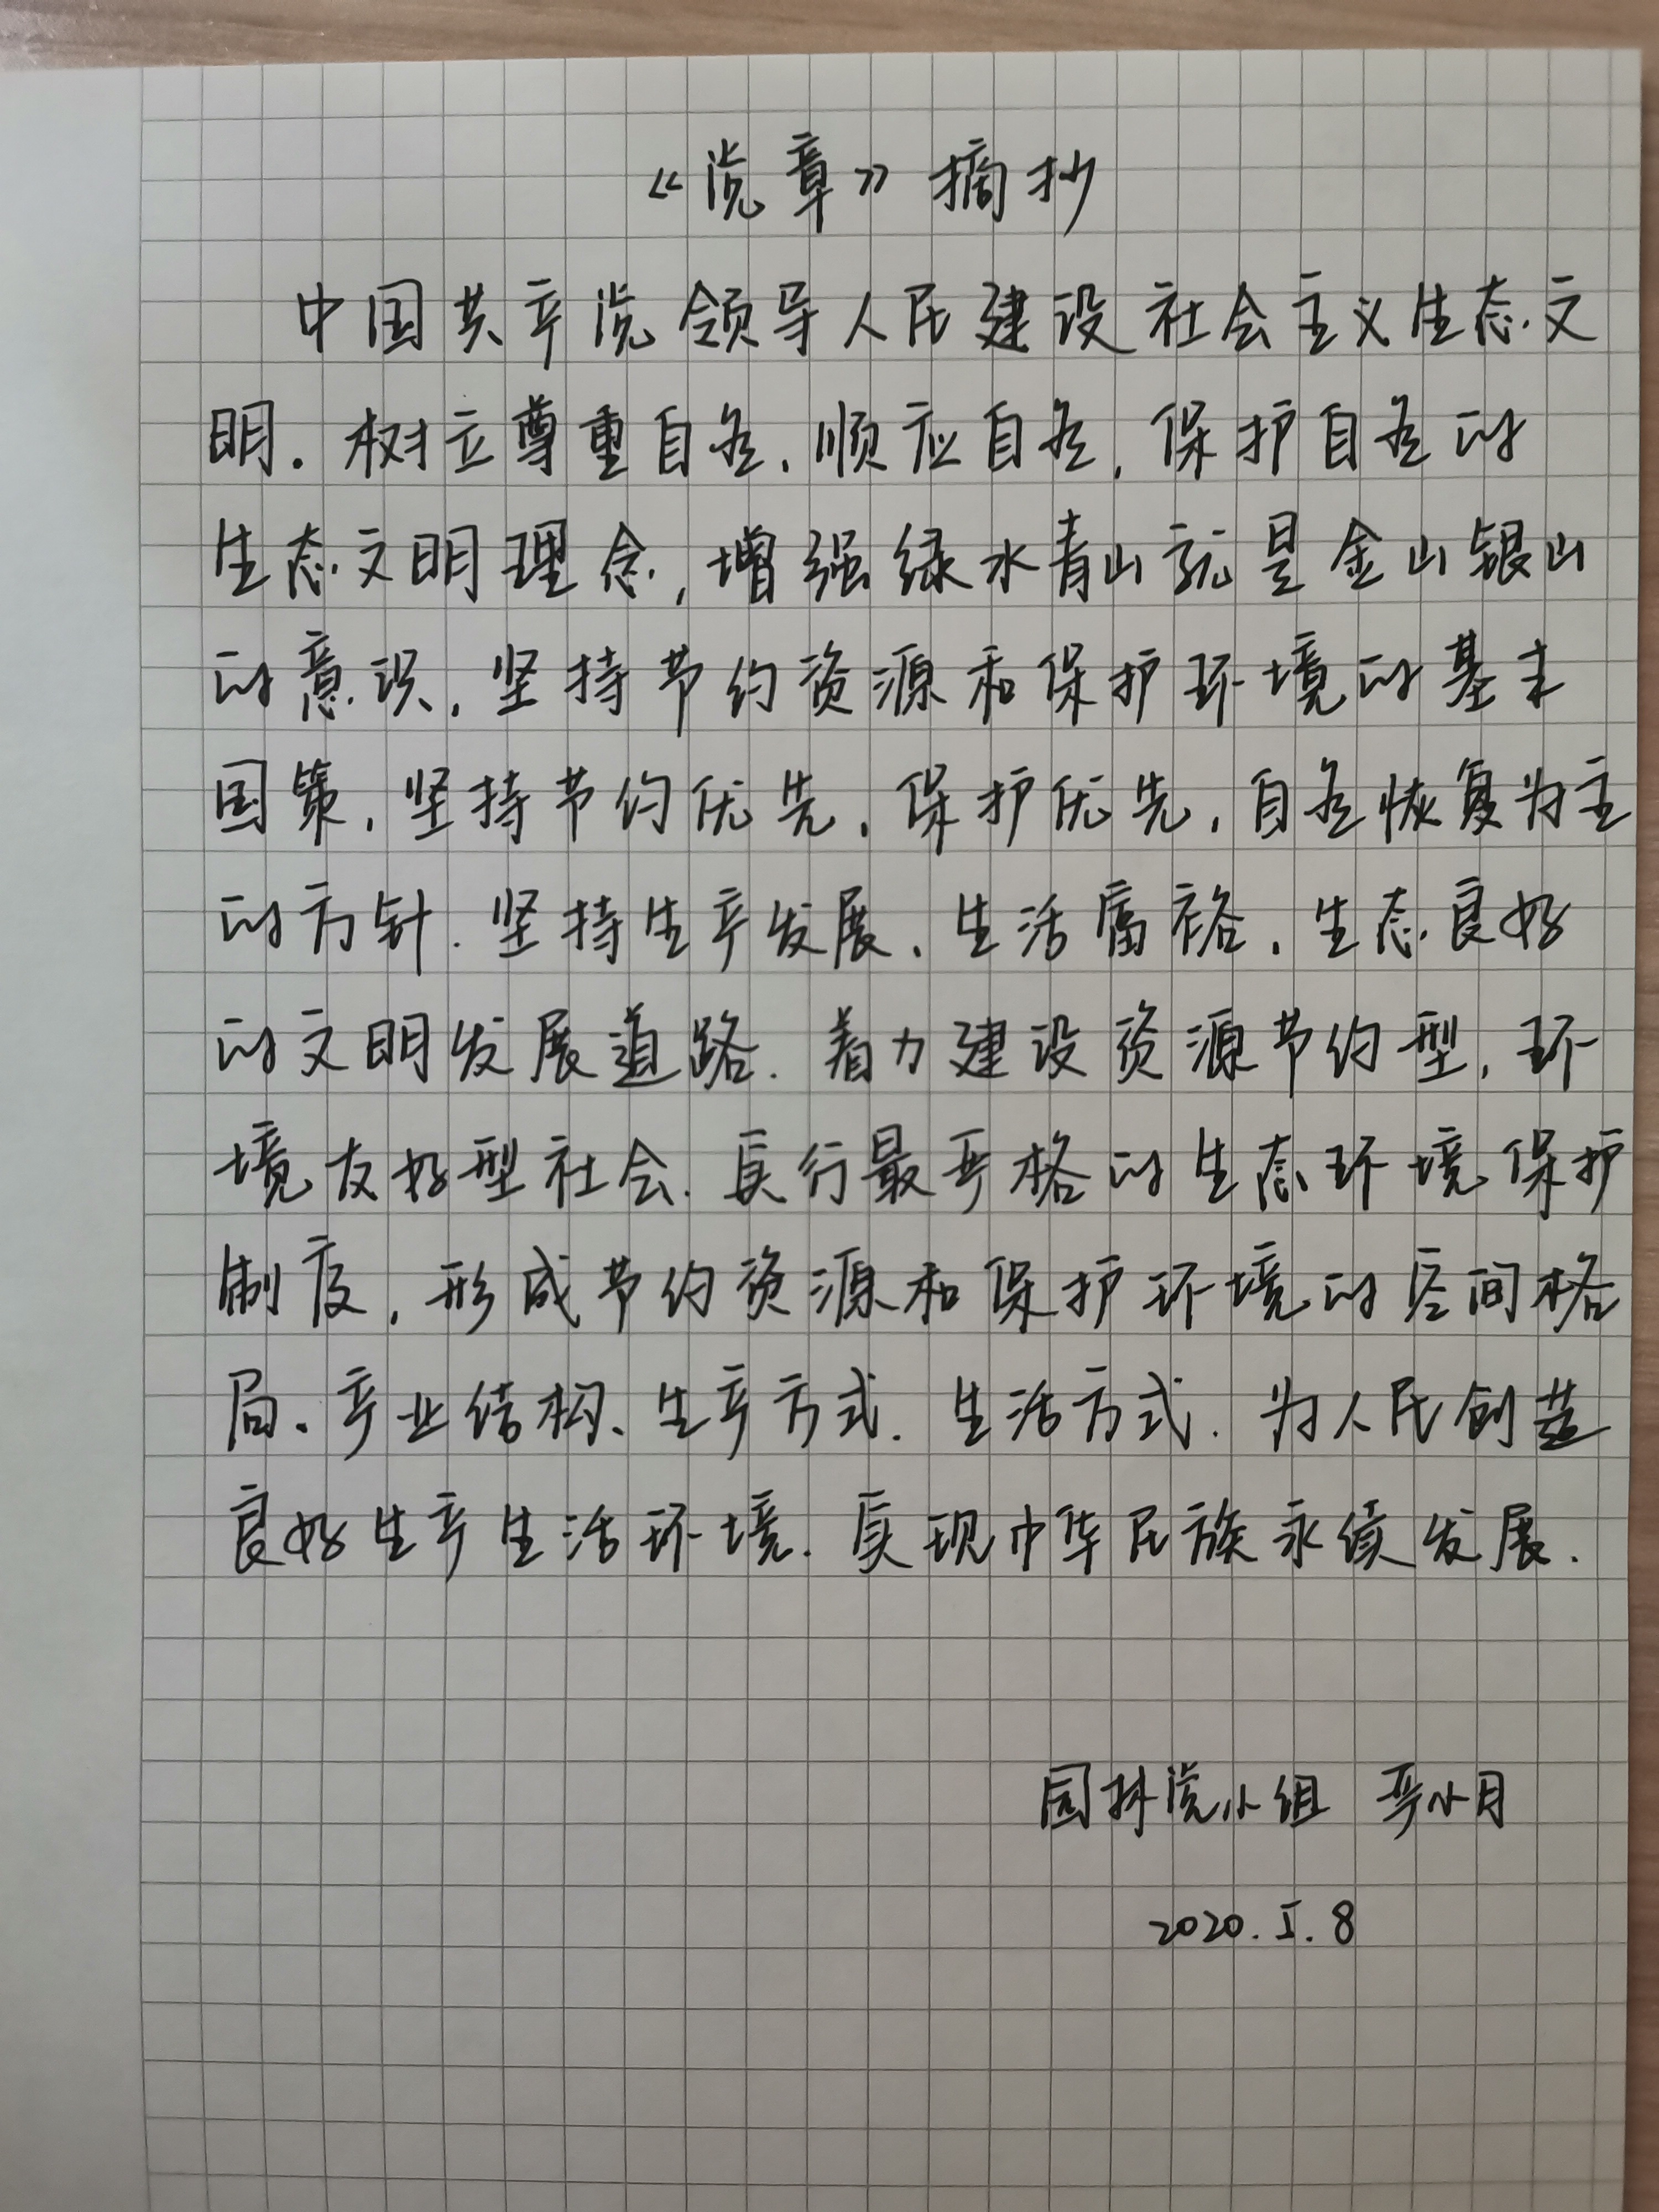 《党章》摘抄
中国共产党领导人民建设社会主义生态文
明。树立尊重自然、顺应自然、保护自然的
生态文明理念，增强绿水青山就是金山银山
的意识，坚持节约资源和保护环境的基本
国策，坚持节约优先、保护优先、自然恢复为主
的方针，坚持生产发展、生活富裕、生态良好
的文明发展道路。着力建设资源节约型、环
境友好型社会，实行最严格的生态环境保护
制度，形成节约资源和保护环境的空间格
局、产业结构、生产方式、生活方式，为人民创造
良好生产生活环境，实现中华民族永续发展。
园林党小组 严小月
2020.5.8